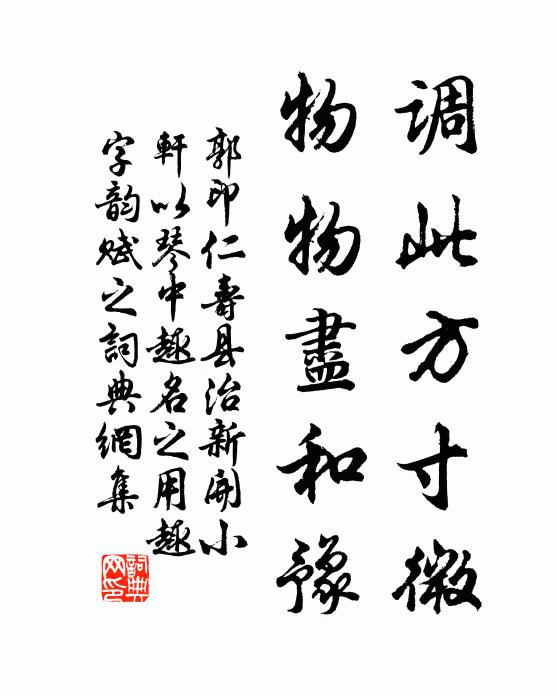 调此方寸微
物物盡和豫
郭印仁壽县治新開小
軒以琴中趣名之用趣
字韵赋之詞典網集
詞典
网印